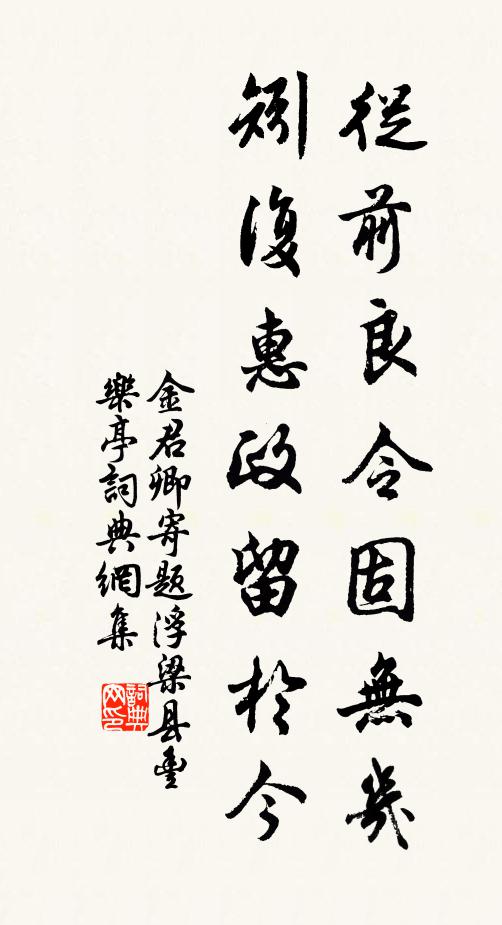 從前良令固無幾
矧復惠政留於今
金君卿寄題浮梁县豐
樂亭詞典網集
詞典
网印